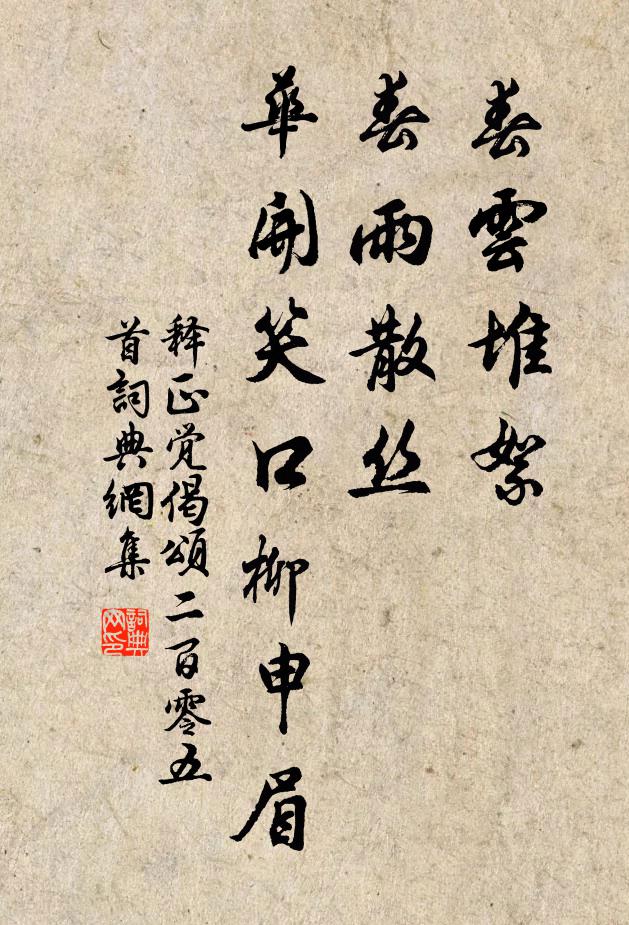 春雲堆絮
春雨散丝
華開笑口柳申眉
释正觉偈頌二百零五
首詞典網集
詞典
网印